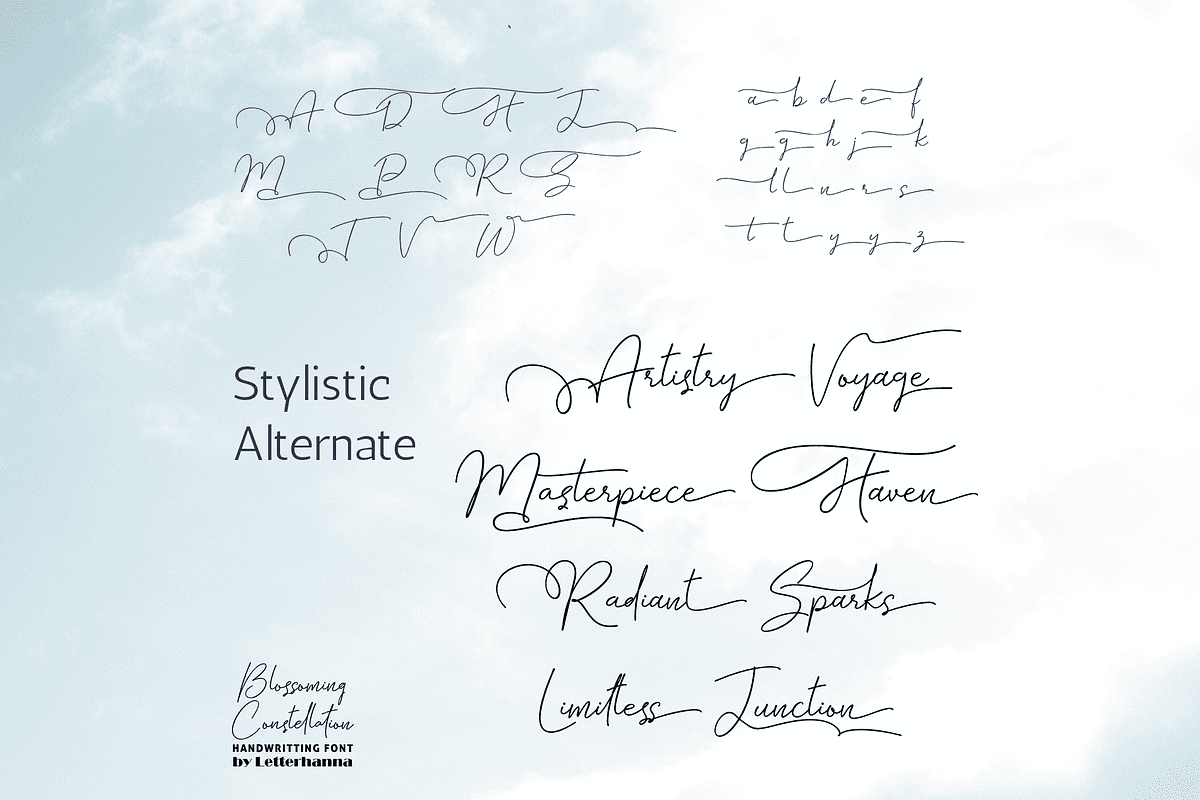 A D H J
M P R S
T V W
a b d e f
g g h j k
l l n r s
t t y y z
Stylistic
Alternate
Artistry Voyage
Masterpiece Haven
Radiant Sparks
Limitless Junction
Blossoming
Constellation
HANDWRITTING FONT
by Letterhanna